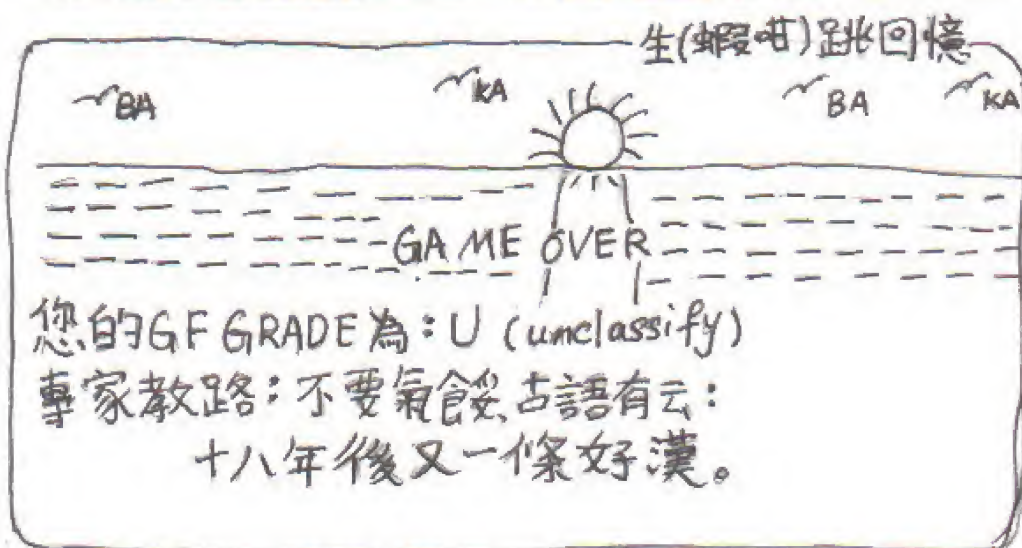 生(蝦咁)跳回憶
BA KA BA KA
GAME OVER
您的GF GRADE為:U (unclassify)
專家教路:不要氣餒,古語有云:
十八年後又一條好漢。